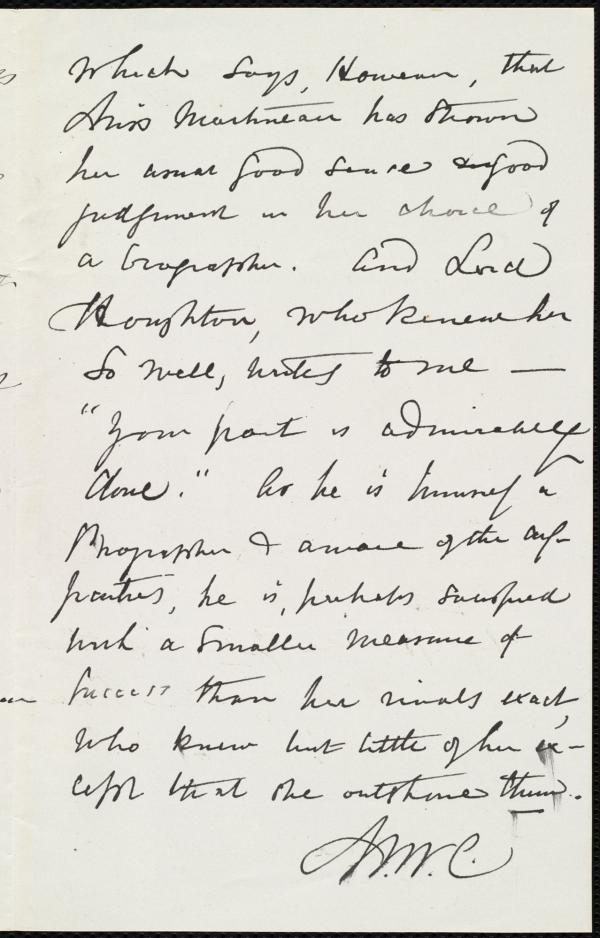 which says, However, that
Miss Martineau has shown
her usual good sense & good
judgment in her choice of
a biographer. And Lord
Houghton, who knew her
so well, writes to me —
"Your part is admirably
done." As he is himself a
Biographer & aware of the dif-
ficulties, he is, perhaps satisfied
with a smaller measure of
success than her rivals exact,
who knew but little of her ex-
cept that she outshone them.
M.W.C.